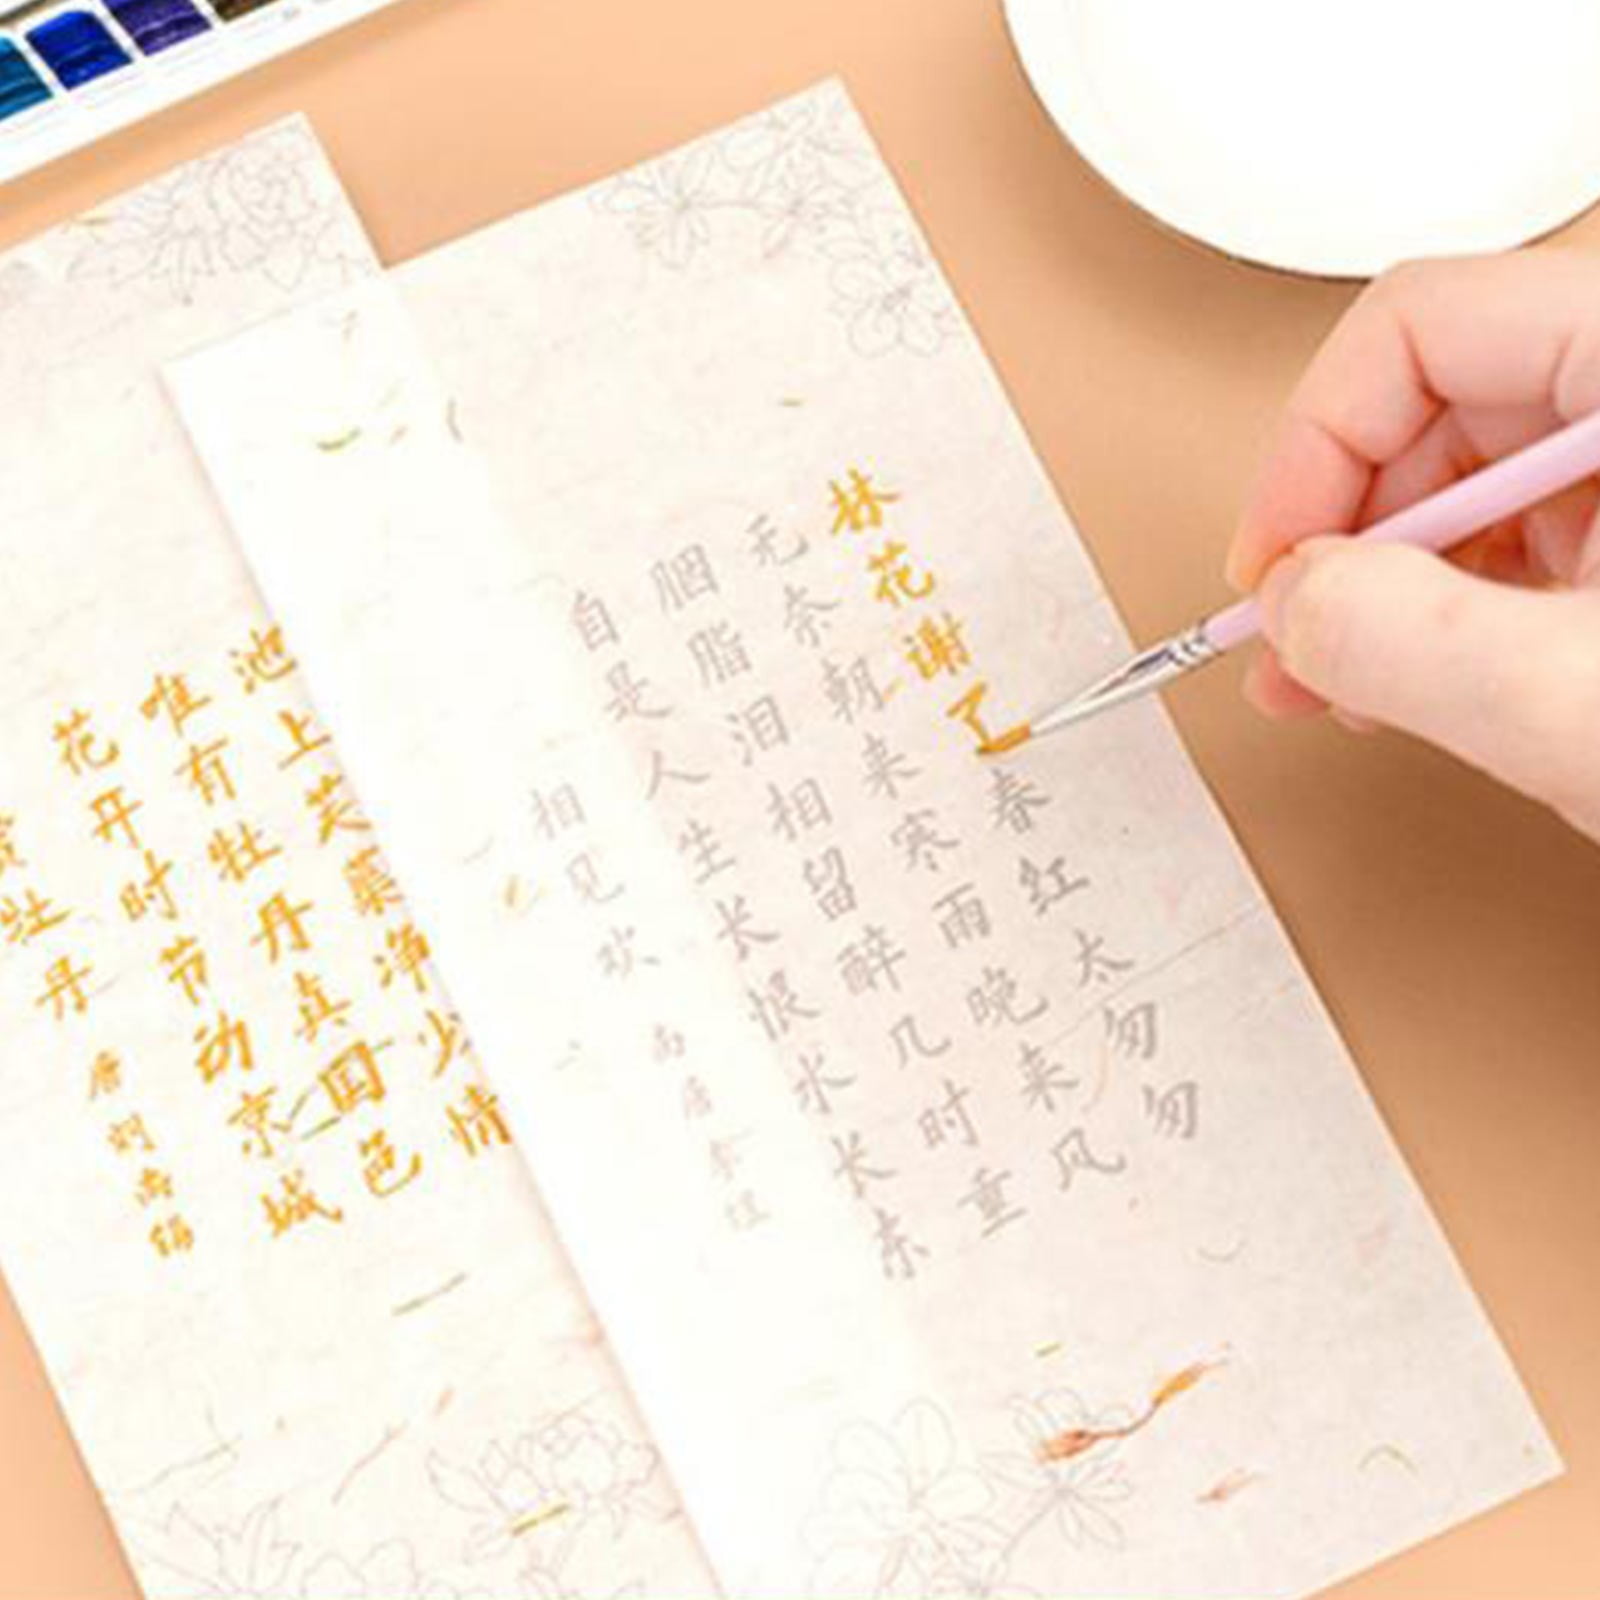 林花谢了春红太匆匆
无奈朝来寒雨晚来风
胭脂泪相留醉几时重
自是人生长恨水长东
相见欢 南唐李煜
池上芙蕖净少情
唯有牡丹真国色
花开时节动京城
赏牡丹 唐刘禹锡